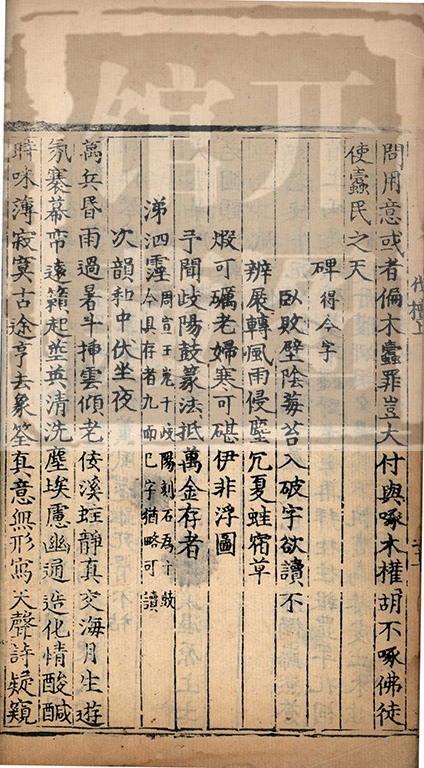 問用意或者偏木蠹罪豈大付與啄木權胡不啄佛徒
使蠹民之天
碑得今字
臥敗壁陰莓苔入破字欲讀不
辨展轉風雨侵堅冗夏蛙宿草
煅可礪老婦寒可碪伊非浮圖
予聞岐陽鼓篆法抵萬金存者
涕泗霪周宣王嵬于岐陽刻石為十鼓
今具存者九而已字猶略可讀
次韻和中伏坐夜
萬兵昏雨過暑斗挿雲傾老俀溪蛭靜真交海月生遊
氛褰幕帟遠籟起莖英清洗塵埃慮幽通造化情酸醎
時味薄寂寞古途亨去象筌真意無形寫天聲詩疑窺